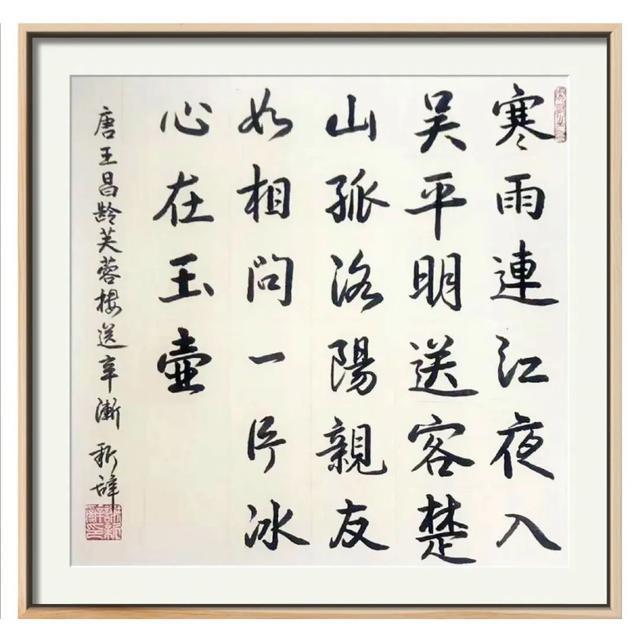 寒雨連江夜入
吴平明送客楚
山孤洛陽親友
如相問一片冰
心在玉壺
唐王昌齡芙蓉樓送辛漸 新锋